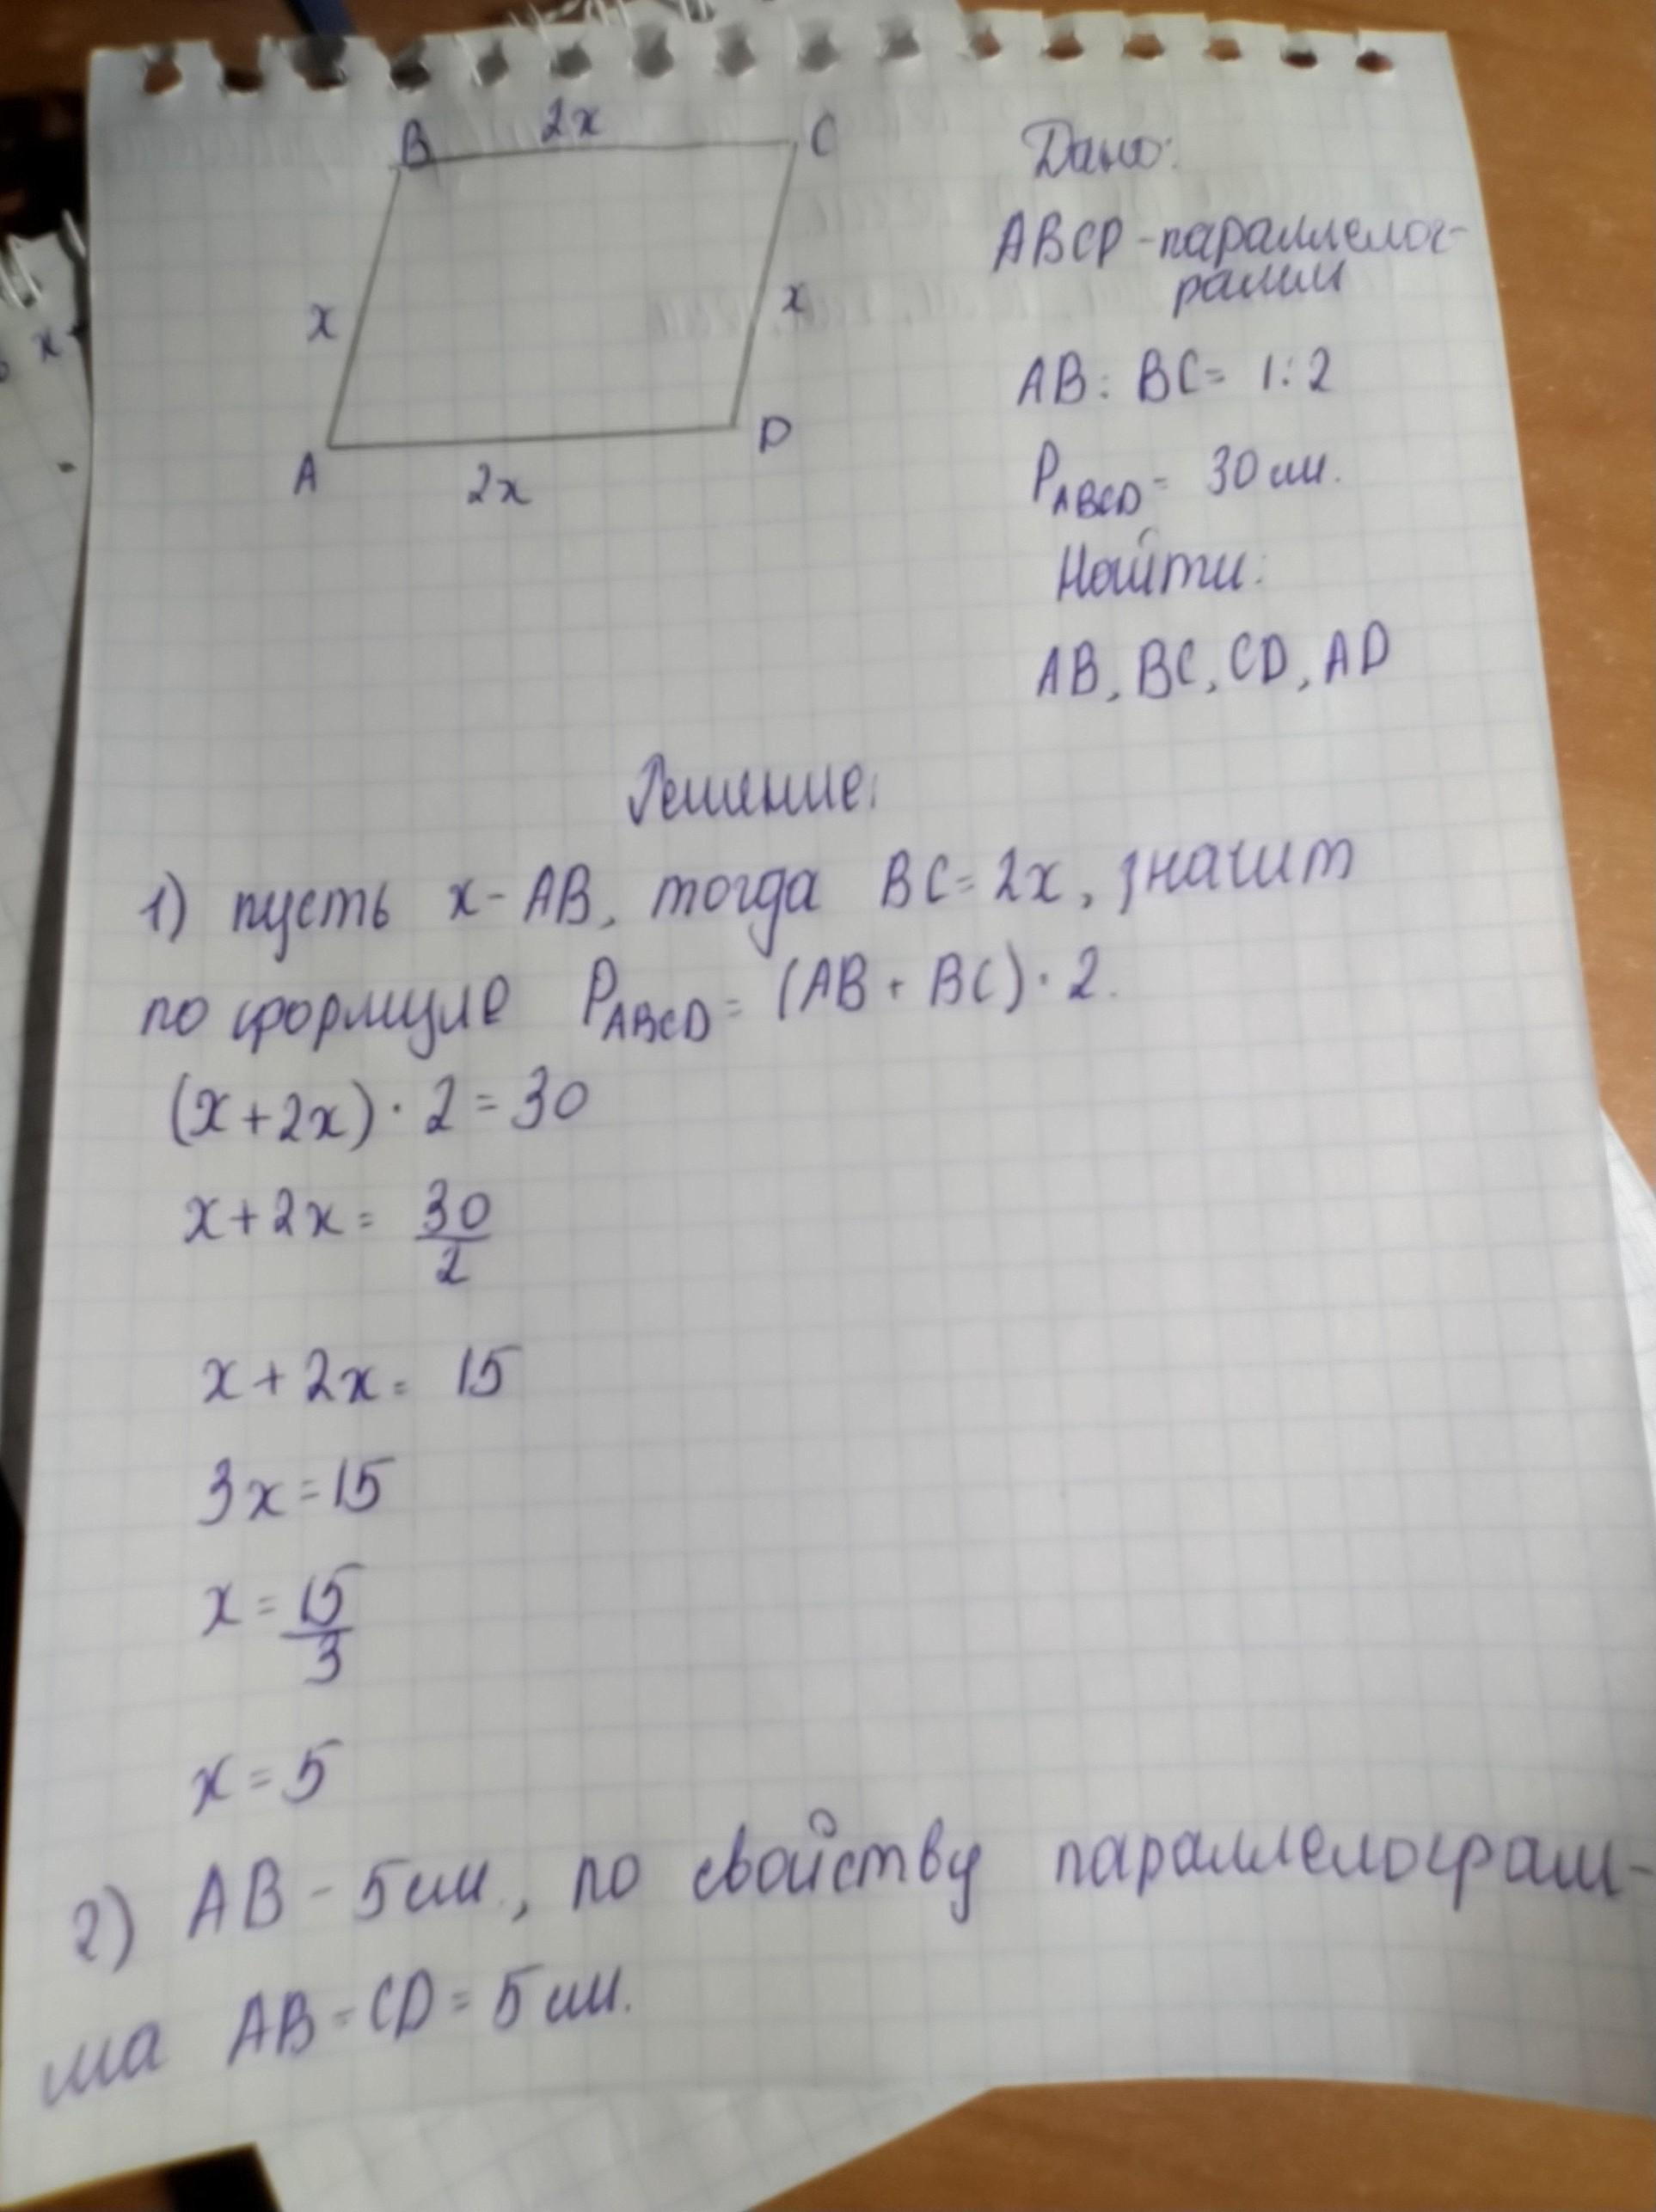 B 2x C
x x
A 2x D
Дано:
ABCD - параллелог-
рамм
AB : BC = 1:2
P_ABCD = 30 см.
Найти:
AB, BC, CD, AD
Решение:
1) пусть x - AB, тогда BC = 2x, значит
по формуле P_ABCD = (AB + BC) · 2.
(x + 2x) · 2 = 30
x + 2x = 30/2
x + 2x = 15
3x = 15
x = 15/3
x = 5
2) AB - 5 см, по свойству параллелограм-
ма AB = CD = 5 см.
x